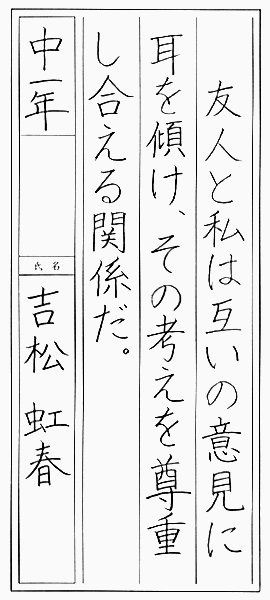 友人と私は互いの意見に
耳を傾け、その考えを尊重
し合える関係だ。
中一年
氏名
吉松 虹春